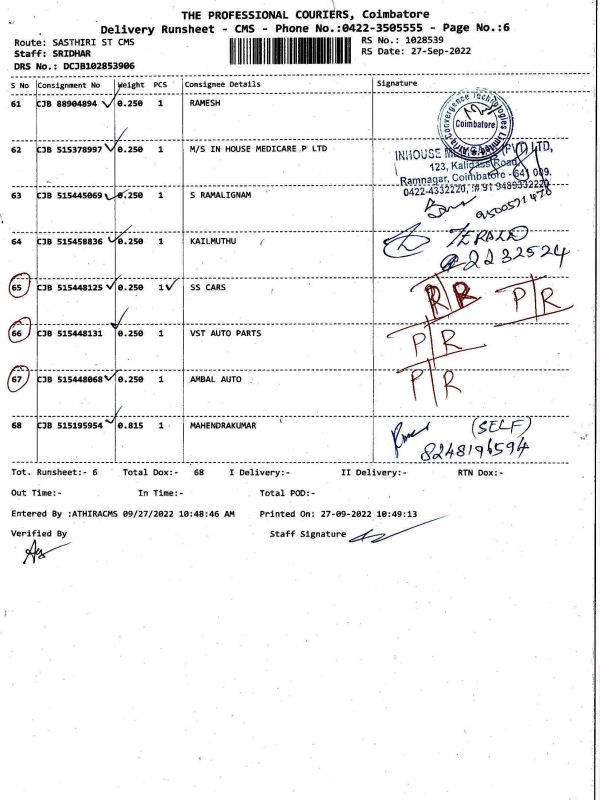 THE PROFESSIONAL COURIERS, Coimbatore
Delivery Runsheet - CMS - Phone No.:0422-3505555 - Page No.:6
Route: SASTHIRI ST CMS
RS No.: 1028539
Staff: SRIDHAR
RS Date: 27-Sep-2022
DRS No.: DCJB102853906
S No Consignment No Weight PCS Consignee Details Signature
61 CJB 88904894 0.250 1 RAMESH
Convergence Technologies
Coimbatore
62 CJB 515378997 0.250 1 M/S IN HOUSE MEDICARE P LTD
INHOUSE (PVT) LTD,
123, Kalidass Road,
Ramnagar, Coimbatore - 641 009.
0422-4332220, # 91 9489332220
63 CJB 515445069 0.250 1 S RAMALIGNAM
9500571470
64 CJB 515458836 0.250 1 KAILMUTHU
2232524
65 CJB 515448125 0.250 1 SS CARS
R R P R
66 CJB 515448131 0.250 1 VST AUTO PARTS
P R
67 CJB 515448068 0.250 1 AMBAL AUTO
P R
68 CJB 515195954 0.815 1 MAHENDRAKUMAR
(SELF)
8248196594
Tot. Runsheet:- 6 Total Dox:- 68 I Delivery:- II Delivery:- RTN Dox:-
Out Time:- In Time:- Total POD:-
Entered By :ATHIRACMS 09/27/2022 10:48:46 AM Printed On: 27-09-2022 10:49:13
Verified By Staff Signature